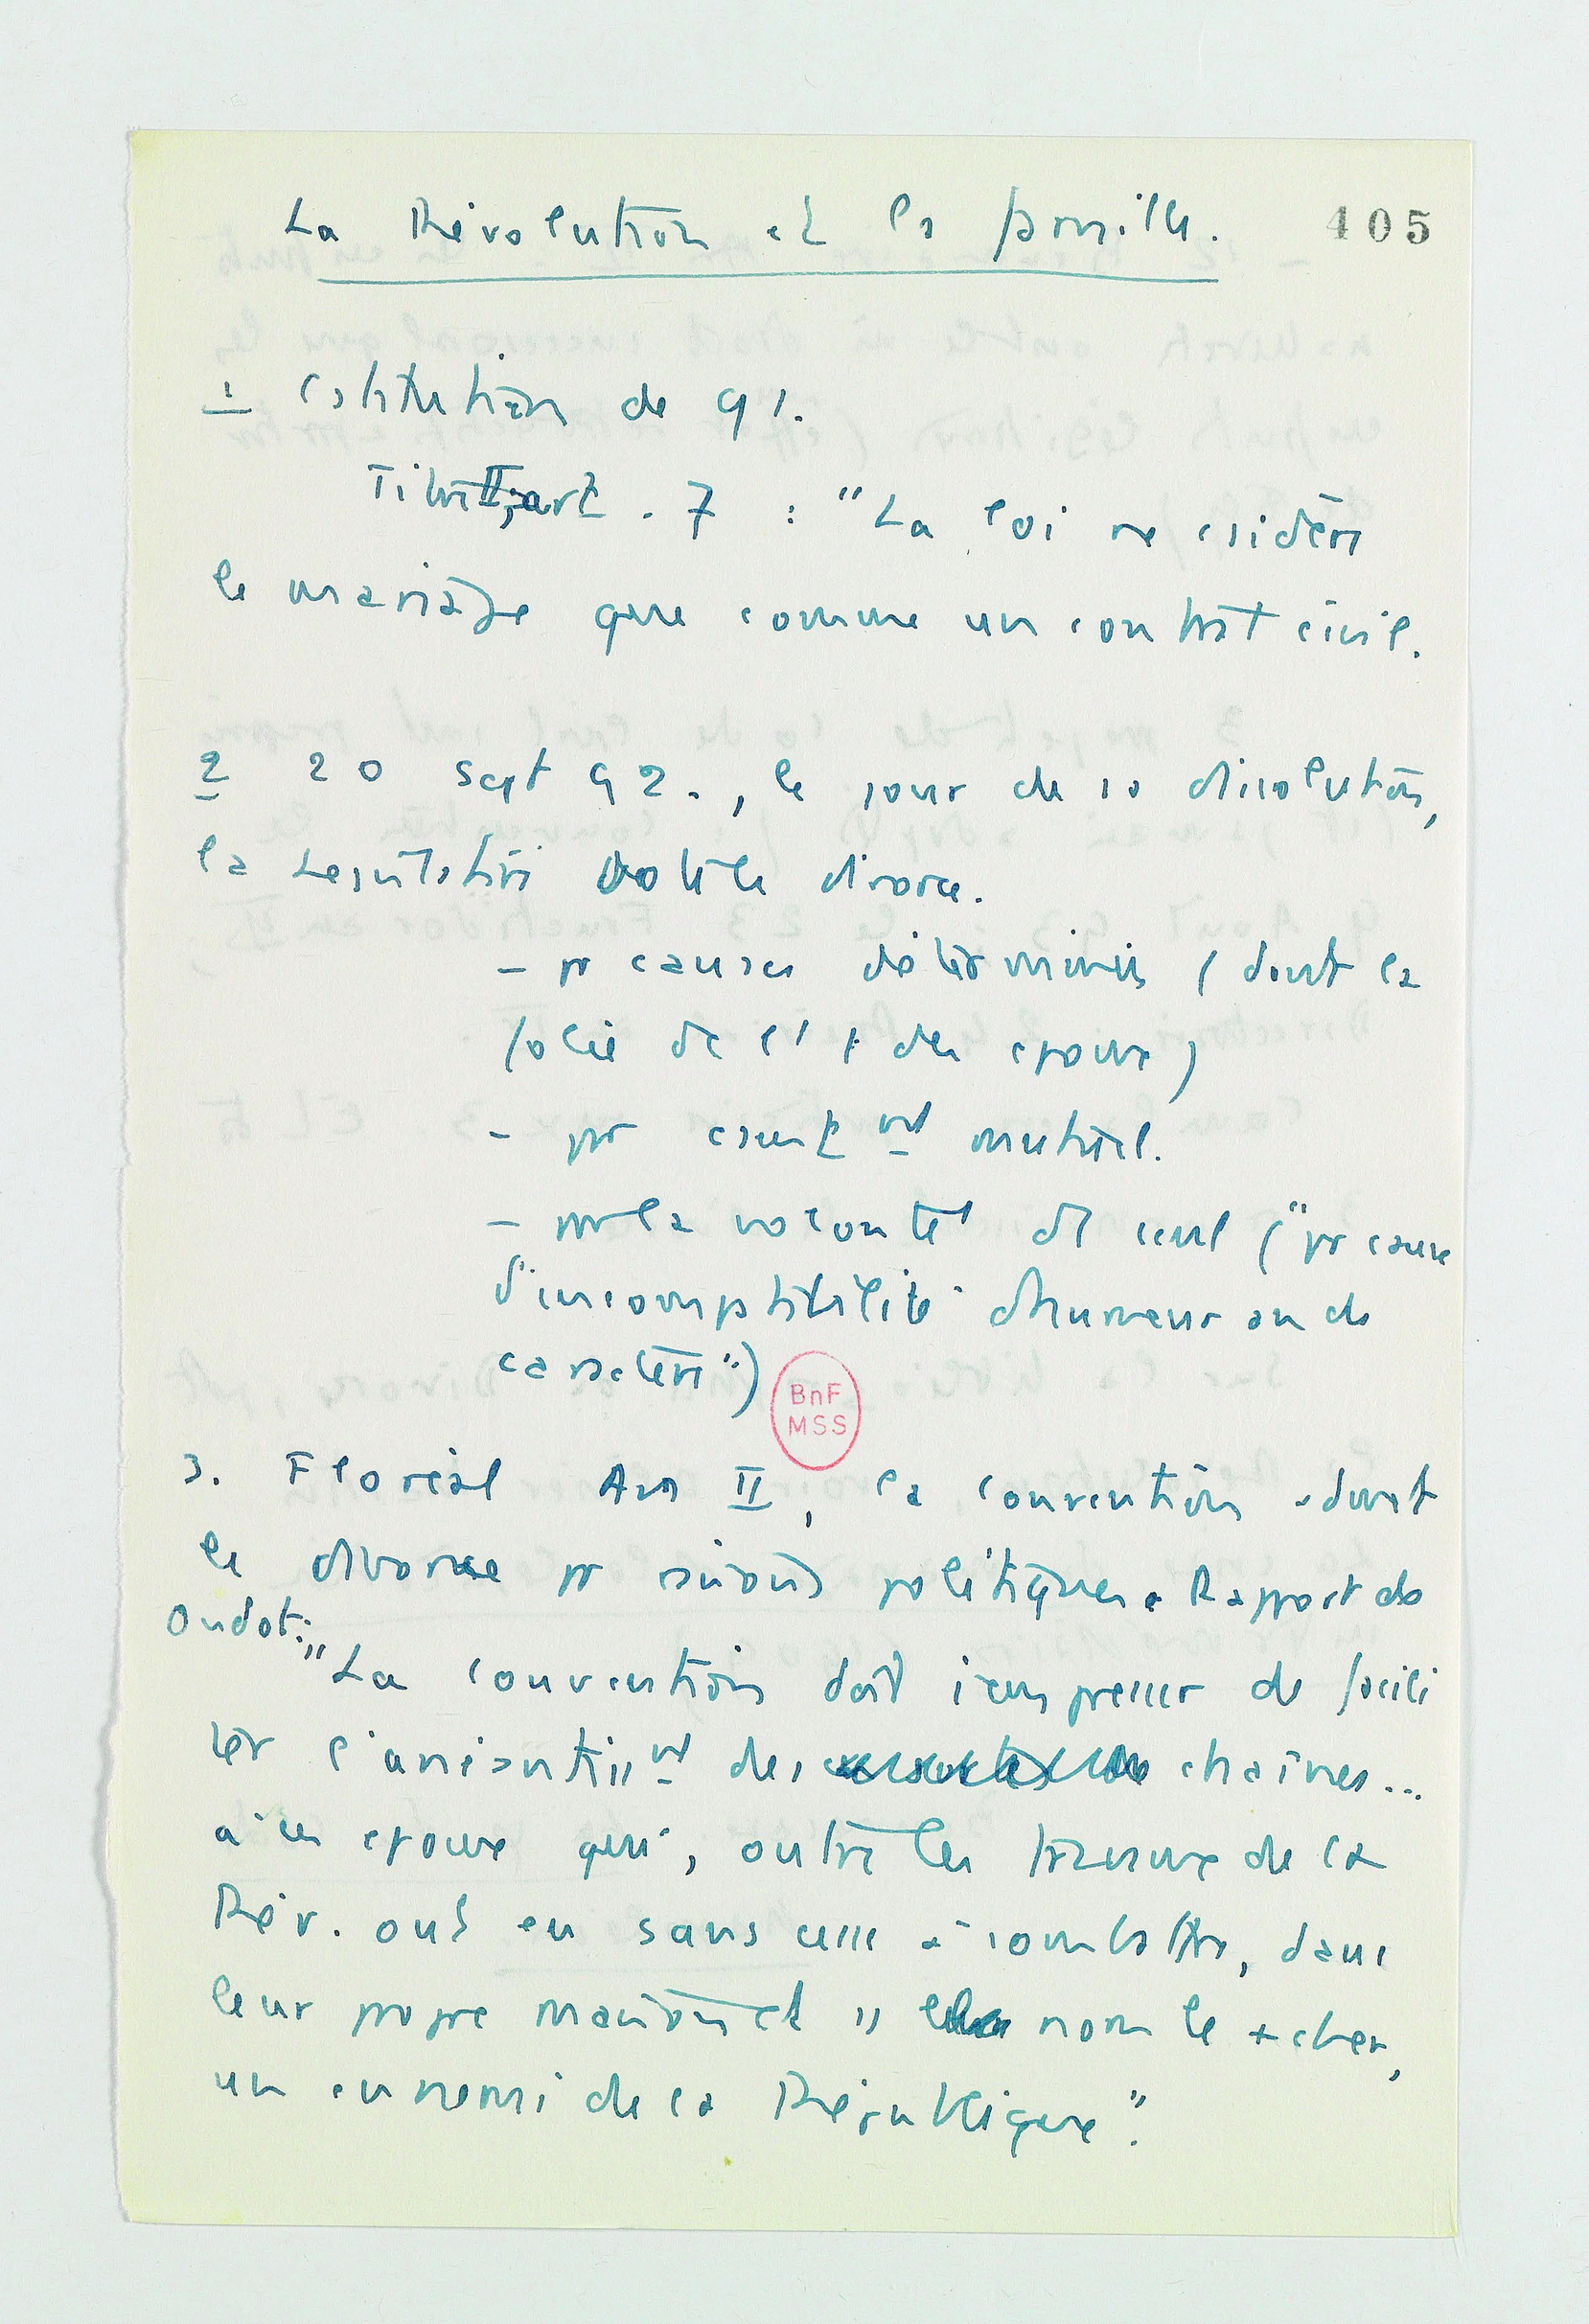 La Révolution et la famille.
405
1 Cstitution de 91.
Titre II, art. 7 : "La loi ne csidère
le mariage que comme un contrat civil.
2 20 sept 92., le jour de sa dissolution,
la Législative vote le divorce.
- pr causes déterminées (dont la
folie de l'1 des époux)
- pr csentmt mutuel.
- pr la volonté d'1 seul ("pr cause
d'incomptibilité d'humeur ou de
caractère")
BnF
MSS
3. Floréal An II, la Convention admet
le divorce pr raisons politiques. Rapport de
Oudot:
"La Convention doit s'empresser de facili
ter l'anéantisst des chaînes...
à ces époux qui, outre les travaux de la
Rév. ont eu sans cesse à combattre, dans
leur propre maison et ss le nom le + cher,
un ennemi de la République".